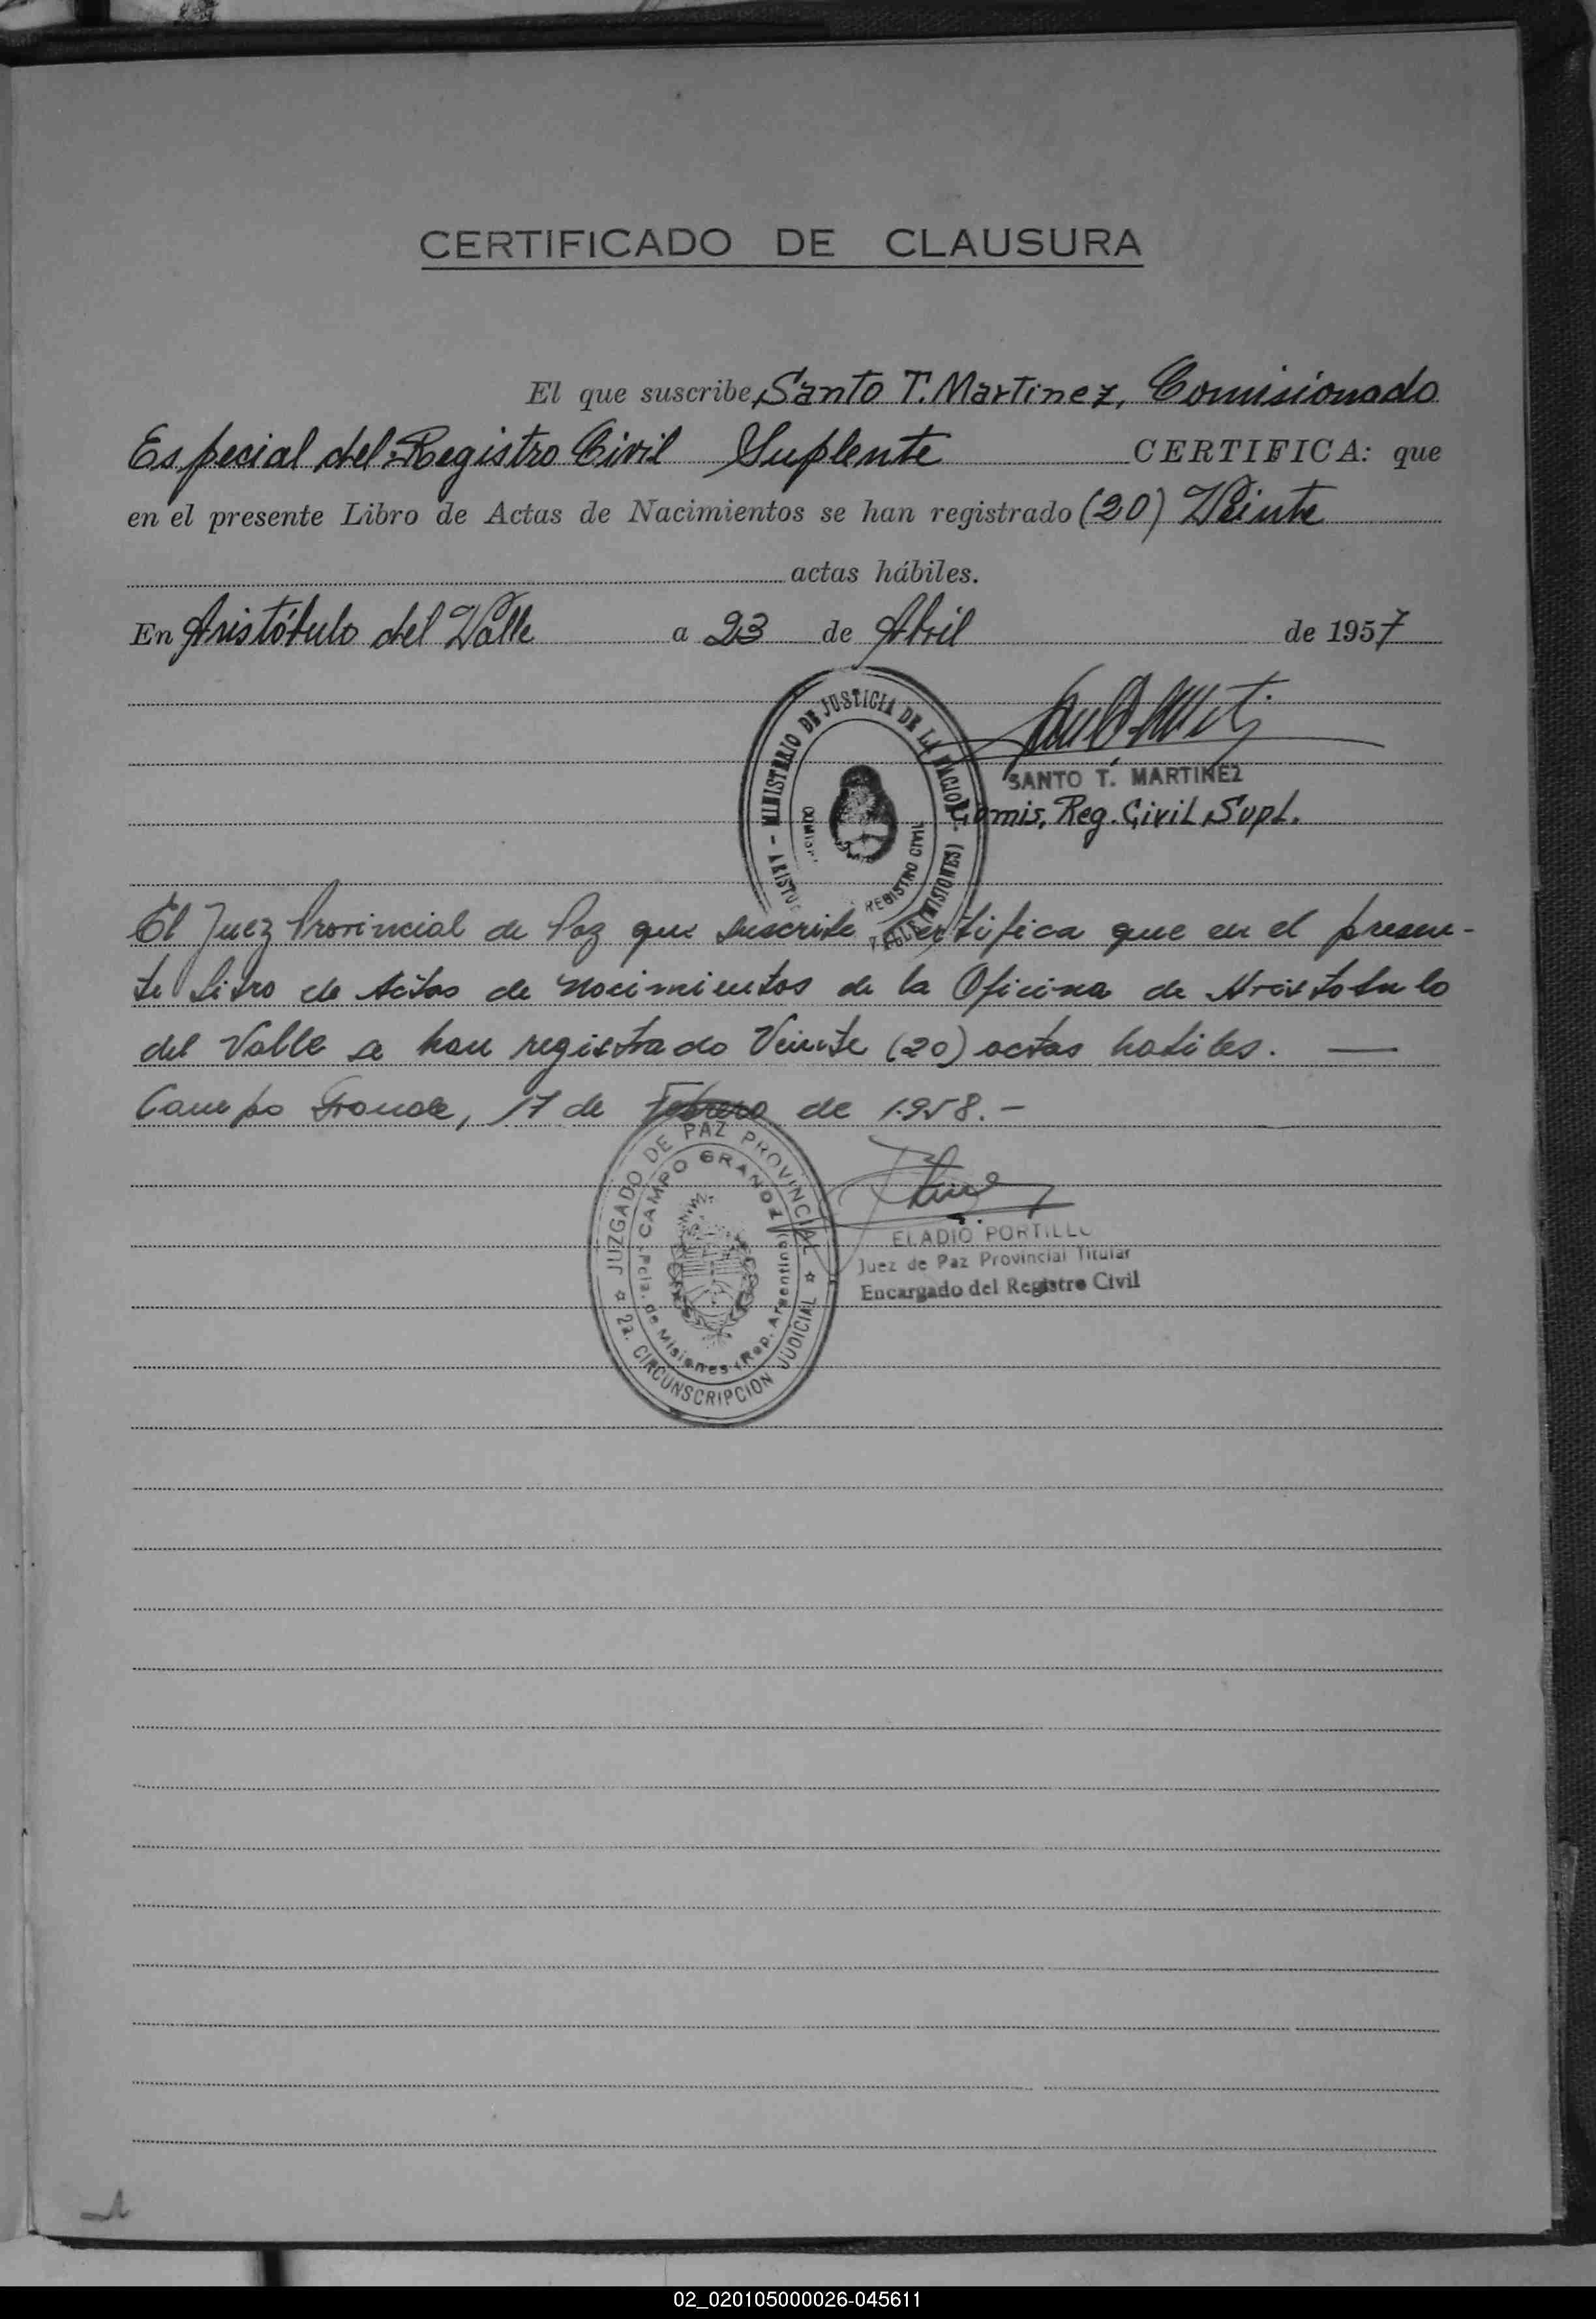 CERTIFICADO DE CLAUSURA
El que suscribe, Santo T. Martinez, Comisionado
Especial del Registro Civil Suplente CERTIFICA: que
en el presente Libro de Actas de Nacimientos se han registrado (20) Veinte
actas hábiles.
En Aristóbulo del Valle a 23 de Abril de 1957
MINISTERIO DE JUSTICIA DE LA NACION
REGISTRO CIVIL
(MISIONES)
SANTO T. MARTINEZ
Comis. Reg. Civil Supl.
El Juez Provincial de Paz que suscribe certifica que en el presen-
te Libro de Actas de Nacimientos de la Oficina de Aristobulo
del Valle se han registrado Veinte (20) actas habiles. —
Campo Grande, 17 de Febrero de 1.958.-
JUZGADO DE PAZ PROVINCIAL
CAMPO GRANDE
Pcia. de Misiones (Rep. Argentina)
2a. CIRCUNSCRIPCION JUDICIAL
ELADIO PORTILLO
Juez de Paz Provincial Titular
Encargado del Registro Civil
02_020105000026-045611